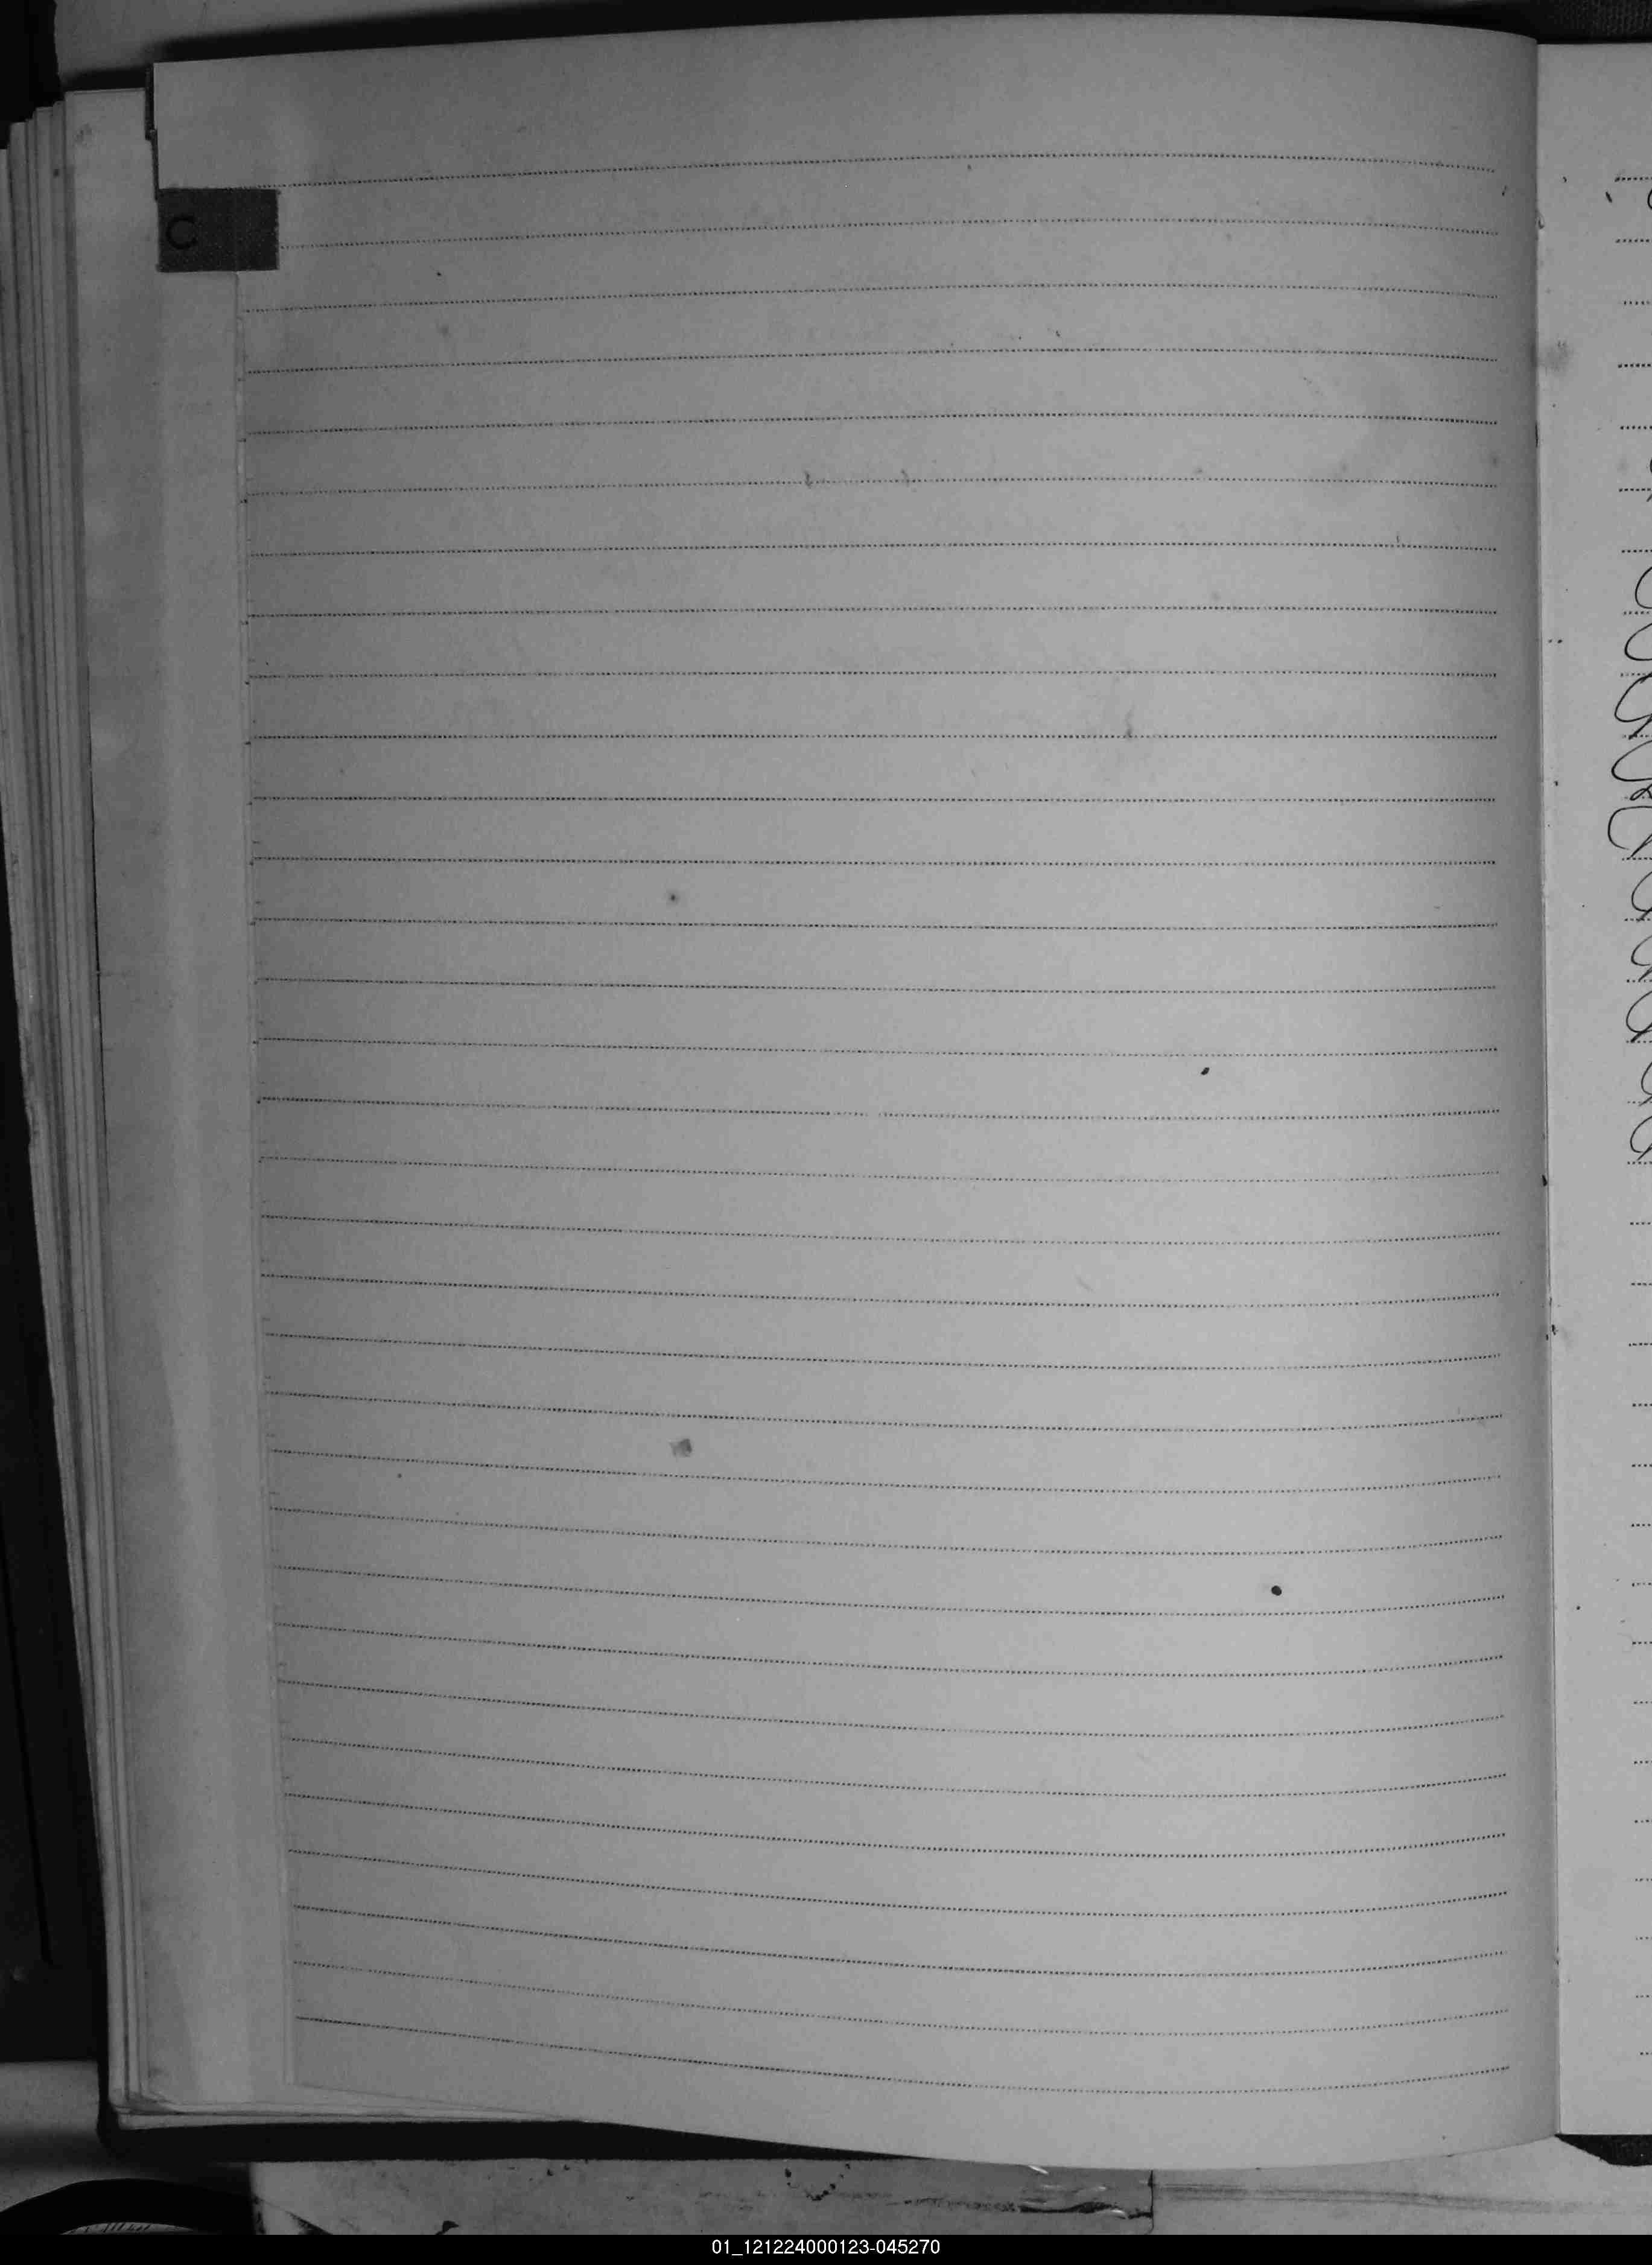 C
01_121224000123-045270